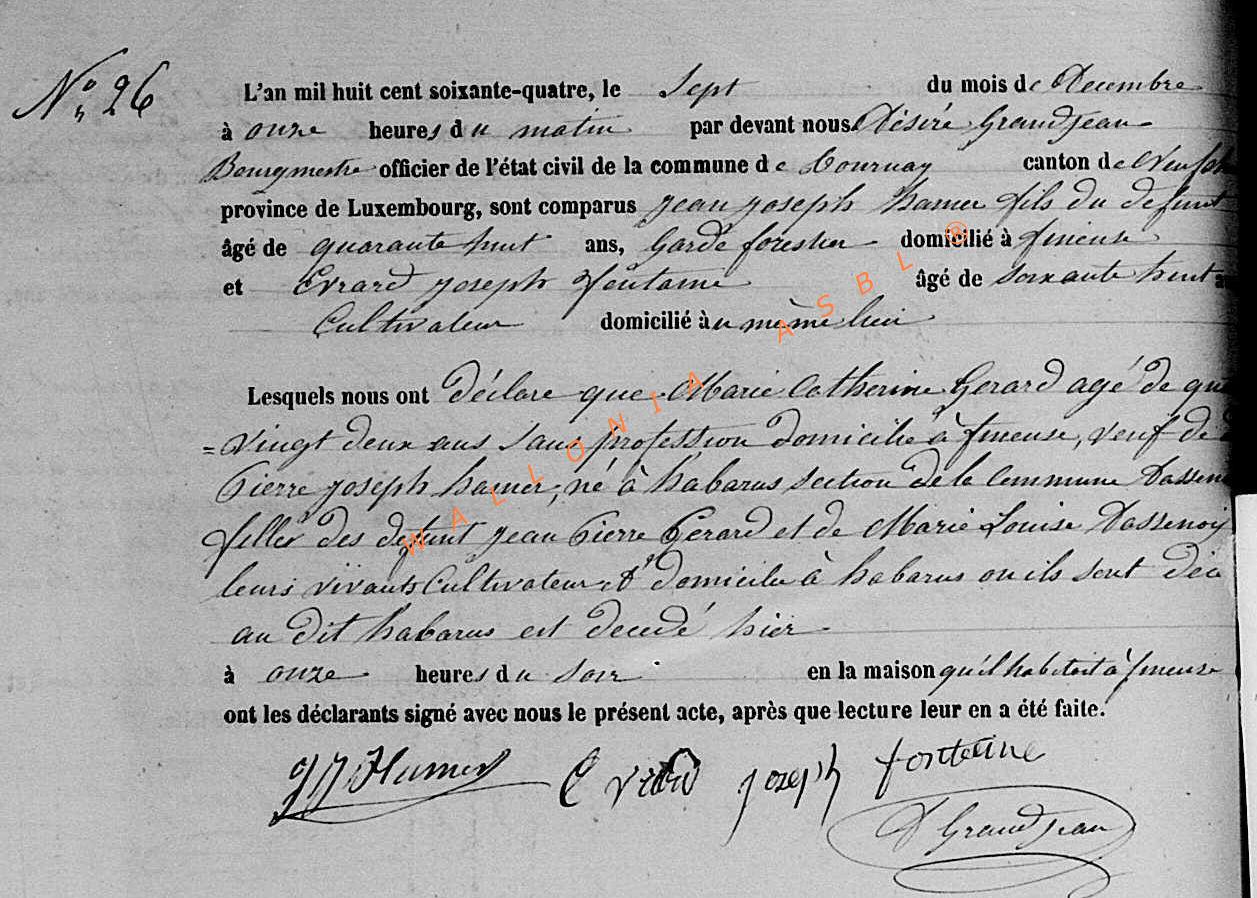 N° 26
L'an mil huit cent soixante-quatre, le Sept du mois de Decembre
à onze heures du matin par devant nous Désiré Grandjean
Bourgmestre officier de l'état civil de la commune de Tournay canton de Neufch
province de Luxembourg, sont comparus jean joseph hamer fils du defunt
âgé de quarante huit ans, Garde forestier domicilié à fineuse
et Evrard joseph fontaine âgé de soixante huit a
Cultivateur domicilié àu même lieu
Lesquels nous ont déclare que Marie Catherine Gerard agé de qu
=vingt deux ans sans profession domicilié à fineuse, veuf de
Pierre joseph hamer, né à habarus section de la Commune Dassen
filler des defunt jean Pierre Gerard et de Marie Louise Dassenoy
leurs vivants Cultivateur et domicilie à habarus ou ils sont déce
au dit habarus est decedé hier
à onze heures du soir en la maison qu'il habitoit à fineuse
ont les déclarants signé avec nous le présent acte, après que lecture leur en a été faite.
JJ Hamer Evrard joseph fontaine
D Grandjean
WALLONIA ASBL ®